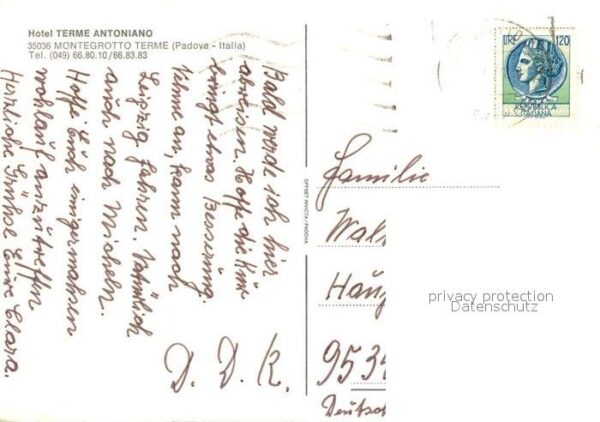 Hotel TERME ANTONIANO
35036 MONTEGROTTO TERME (Padova - Italia)
Tel. (049) 66.80.10/66.83.83
Bald werde ich hier
abreisen. Hoffe die Kur
bringt etwas Besserung.
Nehme an, kann nach
Leipzig fahren. Natürlich
auch nach Micheln.
Hoffe Euch einigermaßen
wohlauf anzutreffen
Herzliche Grüße Eure Clara.
OFFSET INVICTA / PADOVA
LIRE 120
REPUBBLICA
ITALIANA
Familie
D. D. R.
953
privacy protection
Datenschutz